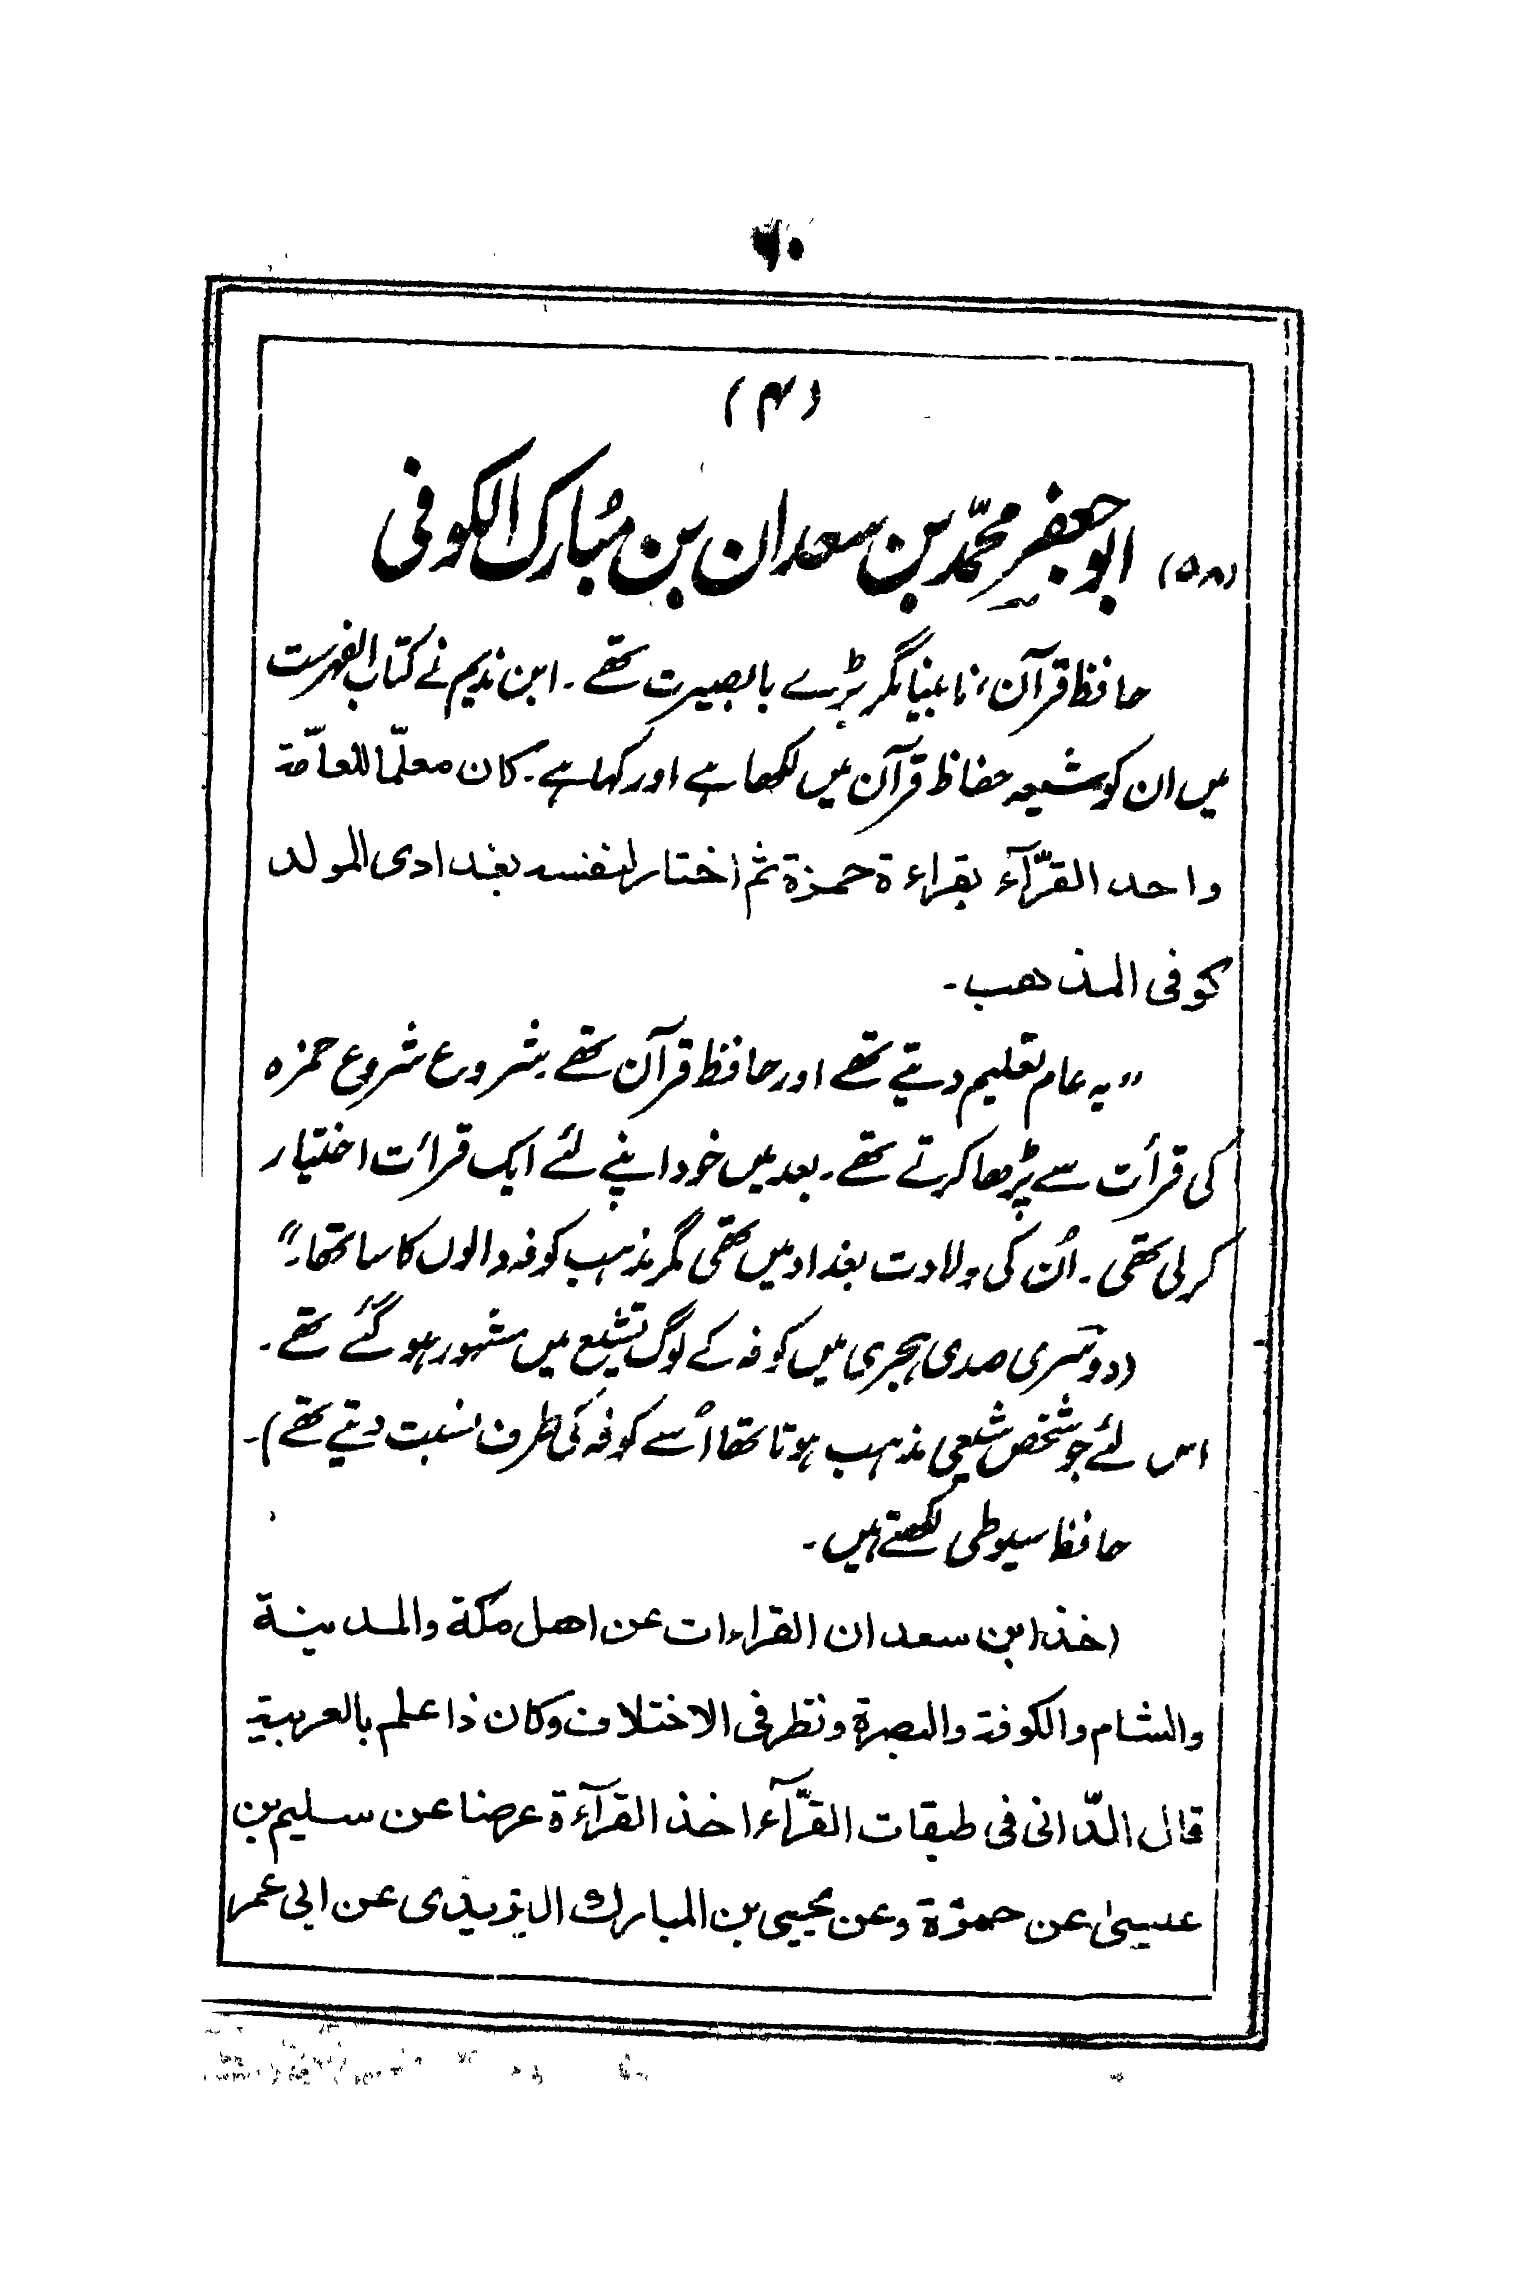 (۴)
(۵۸) ابو جعفر محمّد بن سعدان بن مُبارک الکوفی
حافظ قرآن، نابینا مگر بڑے بابصیرت تھے۔ ابن ندیم نے کتاب الفہرست
میں ان کو شیعہ حفاظ قرآن میں لکھا ہے اور کہا ہے۔ کان معلّما للعامّة
واحد القرّآء بقراءة حمزة ثم اختار لنفسه بغدادی المولد
کوفی المذهب۔
”یہ عام تعلیم دیتے تھے اور حافظ قرآن تھے۔ شروع شروع حمزہ
کی قرأت سے پڑھا کرتے تھے۔ بعد میں خود اپنے لئے ایک قرائت اختیار
کر لی تھی۔ اُن کی ولادت بغداد میں تھی مگر مذہب کوفہ والوں کا سا تھا۔“
(دوسری صدی ہجری میں کوفہ کے لوگ تشیع میں مشہور ہو گئے تھے۔
اس لئے جو شخص شیعی مذہب ہوتا تھا اُسے کوفہ کی طرف نسبت دیتے تھے)۔
حافظ سیوطی لکھتے ہیں۔
اخذ ابن سعدان القراءات عن اهل مکة والمدینة
والشام والکوفة والبصرة ونظر فی الاختلاف وکان ذا علم بالعربیة
قال الدّانی فی طبقات القرّآء اخذ القرآءة عرضا عن سلیم بن
عیسیٰ عن حمزة وعن یحیی بن المبارک الیزیدی عن ابی عمر